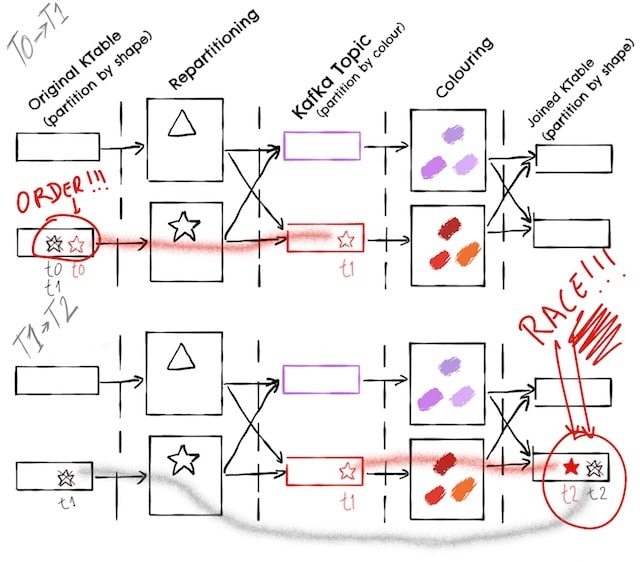 T0→T1
Original KTable
(partition by shape)
Repartitioning
Kafka Topic
(partition by colour)
Colouring
Joined KTable
(partition by shape)
ORDER!!!
t0 t0
t1
t1
T1→T2
RACE!!!!
t1
t1
t2 t2